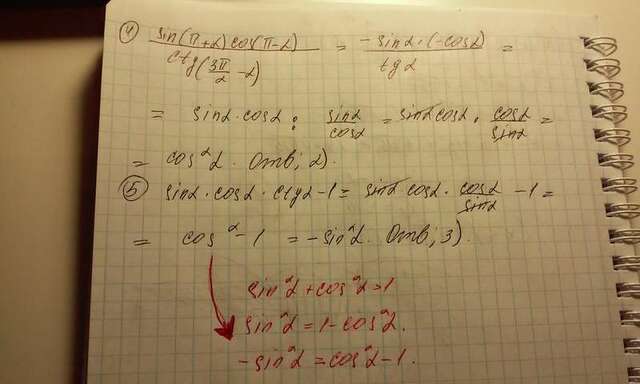 ④ sin(π+α)cos(π-α) / ctg(3π/2-α) = -sinα·(-cosα) / tgα =
= sinα·cosα : sinα/cosα = sinα cosα · cosα/sinα =
= cos²α. Отв; 2).
⑤ sinα·cosα·ctgα-1 = sinα cosα · cosα/sinα -1 =
= cos²-1 = -sin²α. Отв; 3).
sin²α+cos²α=1
sin²α=1-cos²α.
-sin²α=cos²α-1.